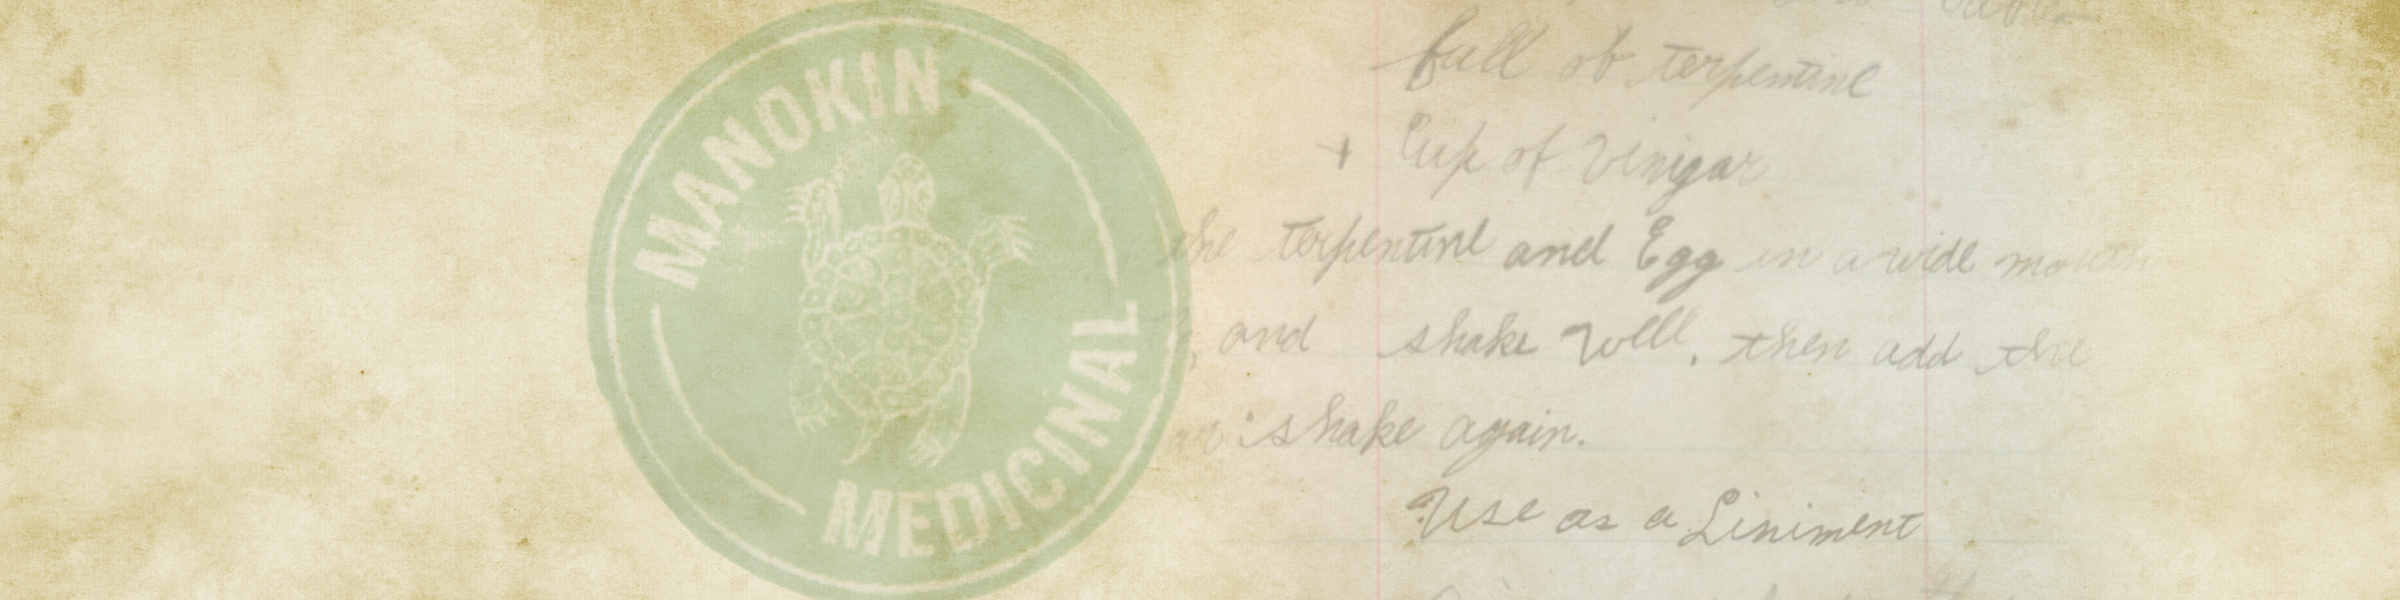 MANOKIN
MEDICINAL
full of terpentine
+ Cup of Vinigar
the terpentine and Egg in a wide mouth
, and shake well. then add the
shake again.
Use as a Liniment